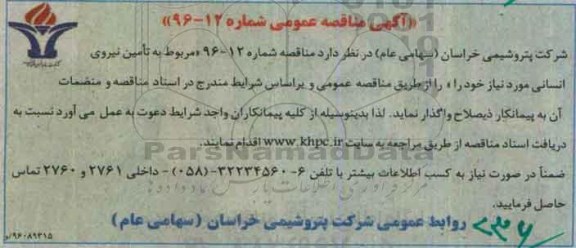 «آگهی مناقصه عمومی شماره ۱۲-۹۶»
شرکت پتروشیمی خراسان (سهامی عام) در نظر دارد مناقصه شماره ۱۲-۹۶ «مربوط به تأمین نیروی
انسانی مورد نیاز خود را» را از طریق مناقصه عمومی و براساس شرایط مندرج در اسناد مناقصه و منضمات
آن به پیمانکار ذیصلاح واگذار نماید. لذا بدینوسیله از کلیه پیمانکاران واجد شرایط دعوت به عمل می آورد نسبت به
دریافت اسناد مناقصه از طریق مراجعه به سایت www.khpc.ir اقدام نمایند.
ParsNamadData
ضمناً در صورت نیاز به کسب اطلاعات بیشتر با تلفن ۶-۳۲۲۳۴۵۶۰ (۰۵۸) - داخلی ۲۷۶۱ و ۲۷۶۰ تماس
حاصل فرمایید.
روابط عمومی شرکت پتروشیمی خراسان (سهامی عام)
۹۶۰۸۹۳۱۵/و